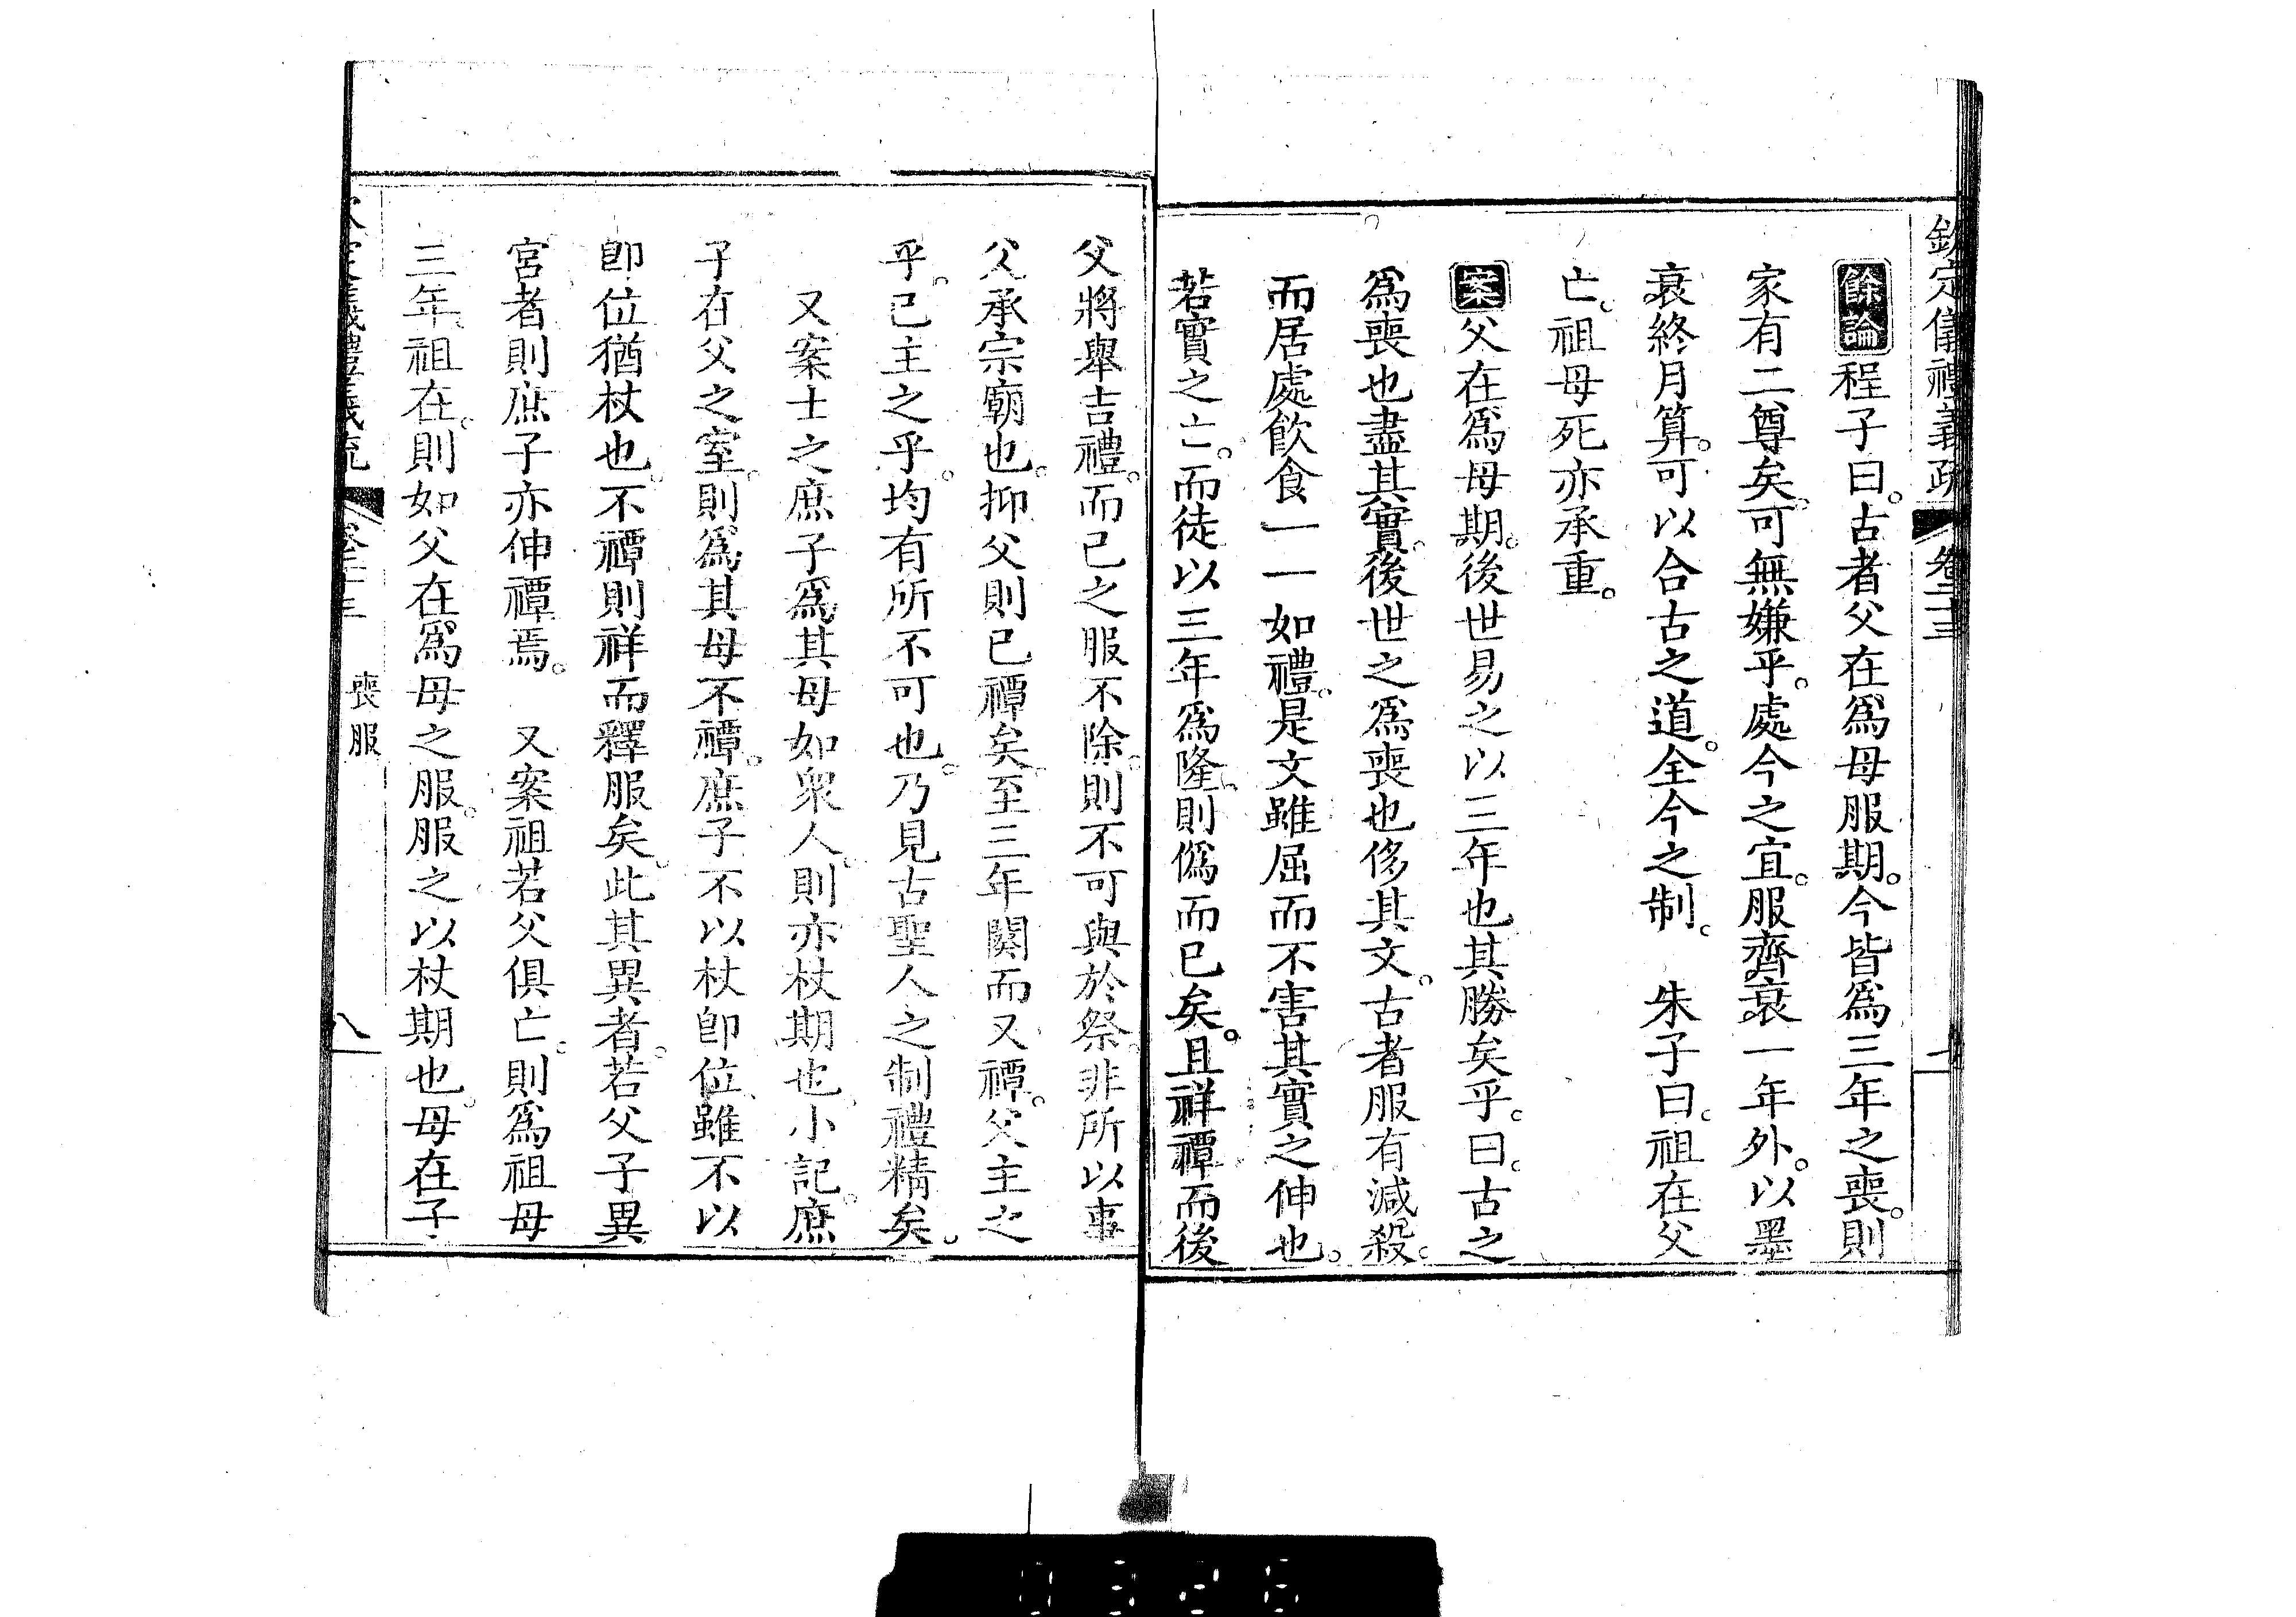 欽定儀禮義疏 卷二十三 七
餘論程子曰。古者父在爲母服期。今皆爲三年之喪。則
家有二尊矣。可無嫌乎。處今之宜。服齊衰一年外。以墨
衰終月算。可以合古之道。全今之制。 朱子曰。祖在父
亡。祖母死亦承重。
案父在爲母期。後世易之以三年也。其勝矣乎。曰。古之
爲喪也盡其實。後世之爲喪也侈其文。古者服有減殺。
而居處飮食一一如禮。是文雖屈而不害其實之伸也。
若實之亡。而徒以三年爲隆。則僞而已矣。且祥禫而後
父將舉吉禮。而已之服不除。則不可與於祭。非所以事
父承宗廟也。抑父則已禫矣。至三年闋而又禫。父主之
乎。已主之乎。均有所不可也。乃見古聖人之制禮精矣。
又案士之庶子爲其母如衆人。則亦杖期也。小記。庶
子在父之室。則爲其母不禫。庶子不以杖卽位。雖不以
卽位猶杖也。不禫則祥而釋服矣。此其異者。若父子異
宮者則庶子亦伸禫焉。 又案祖若父俱亡。則爲祖母
三年。祖在。則如父在爲母之服。服之以杖期也。母在子
喪服 八